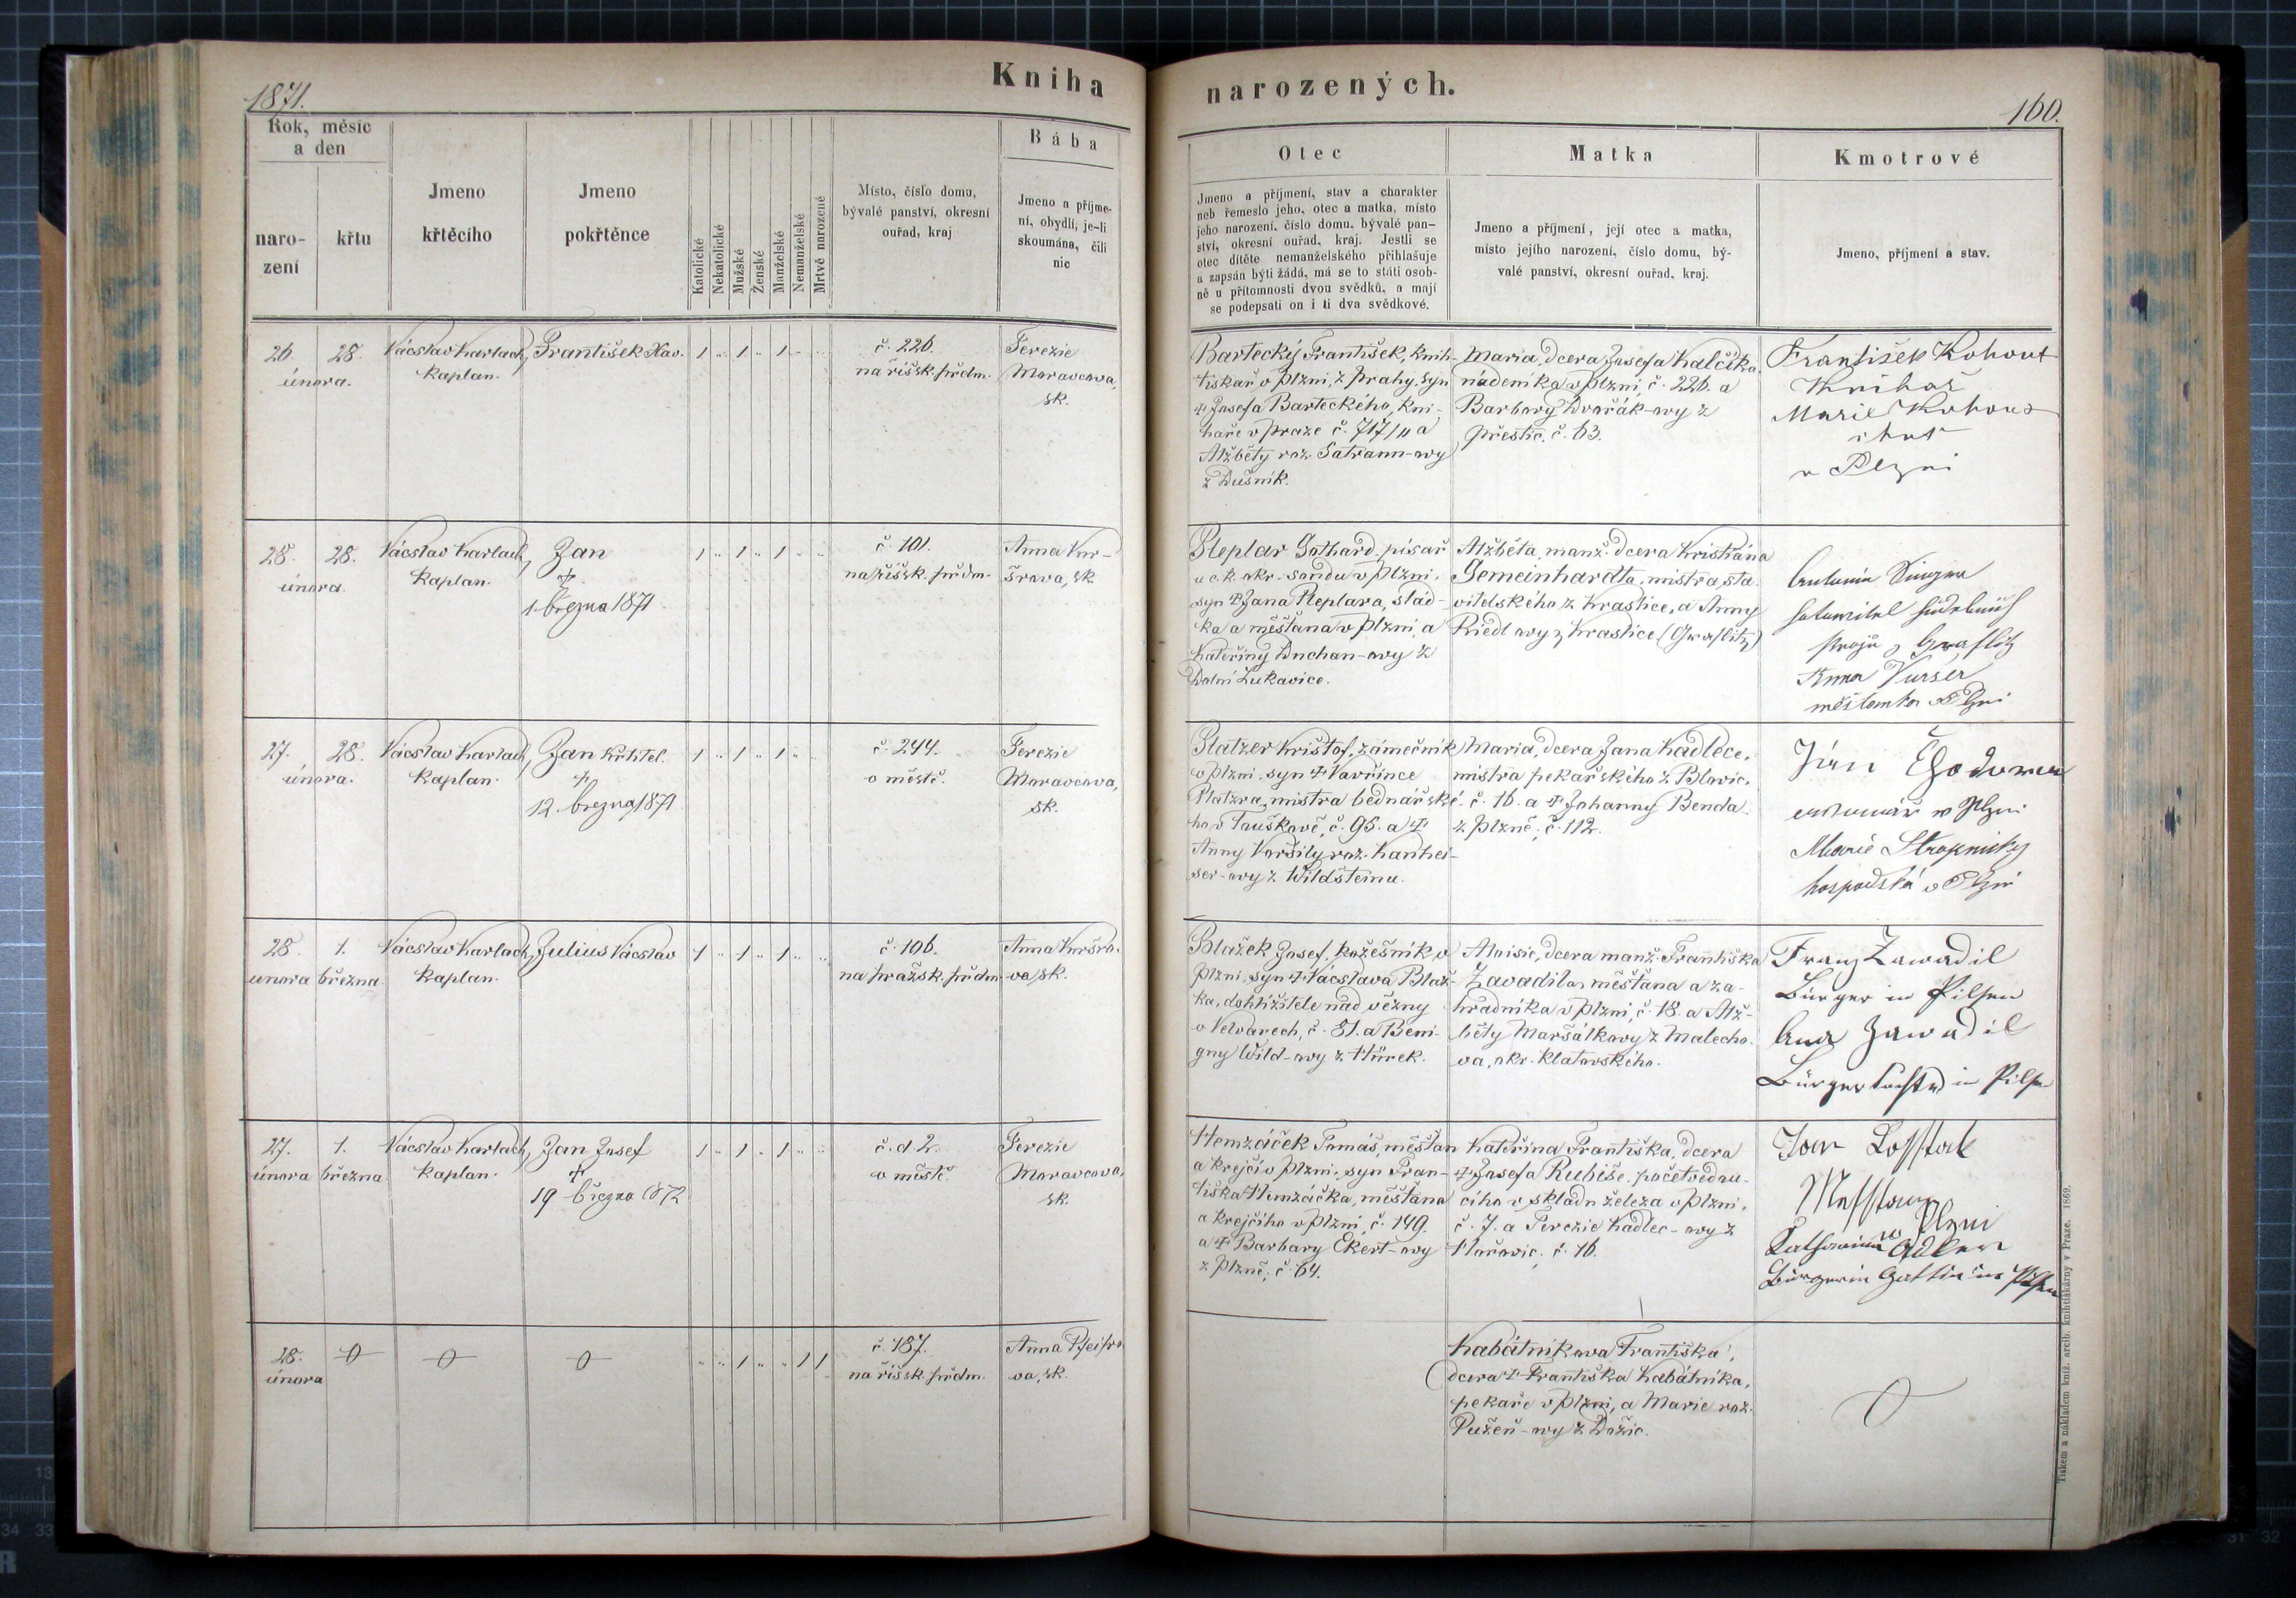 Kniha
narozených.
1871.
160.
Rok, měsíc
a den
naro-
zení
křtu
Jmeno
křtěcího
Jmeno
pokřtěnce
Katolické
Nekatolické
Mužské
Ženské
Manželské
Nemanželské
Mrtvě narozené
Místo, číslo domu,
bývalé panství, okresní
ouřad, kraj
Bába
Jmeno a příjme-
ní, obydlí, je-li
skoumána, čili
nic
Otec
Jmeno a příjmení, stav a charakter
neb řemeslo jeho, otec a matka, místo
jeho narození, číslo domu, bývalé pan-
ství, okresní ouřad, kraj. Jestli se
otec dítěte nemanželského přihlašuje
a zapsán býti žádá, má se to státi osob-
ně u přítomnosti dvou svědků, a mají
se podepsati on i ti dva svědkové.
Matka
Jmeno a příjmení, její otec a matka,
místo jejího narození, číslo domu, bý-
valé panství, okresní ouřad, kraj.
Kmotrové
Jmeno, příjmení a stav.
26. 28.
února.
Vácslav Karlach,
Kaplan.
František Xav.
1 .. 1 .. 1 .. ..
č. 226.
na říšsk. předm.
Terezie
Moravcova,
zk.
Bartecký František, knih-
tiskař v Plzni, z Prahy, syn
† Josefa Barteckého, kni-
haře v Praze č. 717/II a
Alžběty roz. Satrann-ovy
z Dušník.
Maria, dcera Josefa Kalčíka,
nádeníka v Plzni, č. 226. a
Barbory Dvořák-ovy z
Přestic. č. 63.
František Kohout
Knihař
Marie Kohout
v Plzni
28. 28.
února.
Vácslav Karlach,
Kaplan.
Jan
†
1. března 1871
1 .. 1 .. 1 .. ..
č. 101.
na říšsk. předm.
Anna Vur-
šrova, zk.
Pleplar Gothard, písař
u c. k. okr. soudu v Plzni,
syn † Jana Pleplara, slád-
ka a měšťana v Plzni, a
Kateřiny Duchan-ovy z
Dolní Lukavice.
Alžběta, manž. dcera Kristiána
Gemeinhardta, mistra sta-
vitelského z Kraslice, a Anny
Riedl-ovy z Kraslice (Graslitz)
Anna Vurser
měšťanka v Plzni
27. 28.
února.
Vácslav Karlach,
Kaplan.
Jan Křtitel.
†
12. března 1871
1 .. 1 .. 1 .. ..
č. 244.
v městě.
Terezie
Moravcova,
zk.
Platzer Krištof, zámečník
v Plzni, syn † Vavřince
Platzra, mistra bednářské-
ho v Touškově, č. 95. a †
Anny Voršily roz. Kanhei-
ser-ovy z Wildšteinu.
Maria, dcera Jana Kadlece,
mistra pekařského z Blovic,
č. 16. a † Johanny Benda
z Plzně, č. 112.
v Plzni
Marie Stropnicky
hospodská v Plzni
28. 1.
února března.
Vácslav Karlach,
Kaplan.
Julius Vácslav
1 .. 1 .. 1 .. ..
č. 106.
na pražsk. předm.
Anna Vuršro-
va, zk.
Blažek Josef, kožešník v
Plzni, syn † Vácslava Blaž-
ka, dohlížitele nad vězny
v Velvarech, č. 81. a Beni-
gny Wild-ovy z Hůrek.
Aloisie, dcera manž. Františka
Zavadila, měšťana a za-
hradníka v Plzni, č. 18. a Alž-
běty Maršálkovy z Malecho-
va, okr. Klatovského.
Franz Zawadil
Bürger in Pilsen
Ana Zawadil
Bürgerstochter in Pilsen
27. 1.
února března
Vácslav Karlach,
Kaplan.
Jan Josef
†
19 března 1872
1 .. 1 .. 1 .. ..
č. d. 2.
v městě.
Terezie
Moravcova,
zk.
Hemzáček Tomáš, měšťan
a krejčí v Plzni, syn Fran-
tiška Hemzáčka, měšťana
a krejčího v Plzni, č. 149.
a † Barbary Ekert-ovy
z Plzně, č. 64.
Kateřina Františka, dcera
† Josefa Rubiše, početvedou-
cího v skladu železa v Plzni,
č. 7. a Terezie Kadlec-ovy z
Hořovic. č. 16.
Plzni
Katharina Adler
Bürgerin Gattin in Pilsen
28.
února
.. .. 1 .. .. 1 1
č. 187.
na říšsk. předm.
Anna Pfeifro-
va, zk.
Kabátníkova Františka,
dcera † Františka Kabátníka,
pekaře v Plzni, a Marie roz.
Pužeň-ovy z Dožic.
Tiskem a nákladem kníž. arcib. knihtiskárny v Praze. 1869.